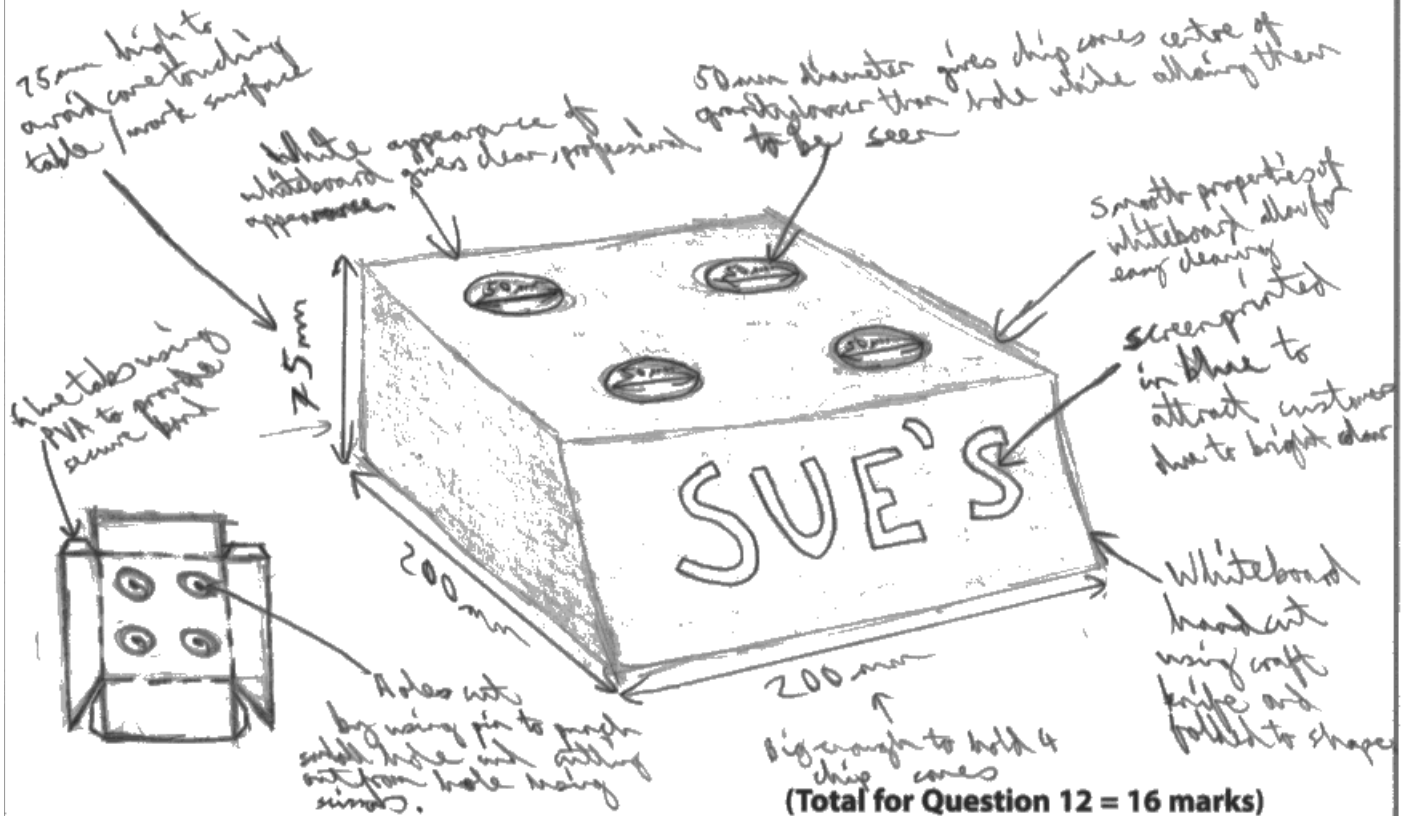 75mm high to
avoid cone touching
table / work surface
White appearance of
whiteboard gives clean, professional
appearance.
50mm diameter gives chip cones centre of
gravity lower than hole while allowing them
to be seen
Smooth properties of
whiteboard allow for
easy cleaning
screenprinted
in blue to
attract customers
due to bright colour
Glue tabs using
PVA to provide
secure bond
75mm
50mm
50mm
50mm
50mm
SUE'S
200mm
200mm
Whiteboard
handcut
using craft
knife and
folded to shape
Holes cut
by using pin to punch
small hole and cutting
out from hole using
scissors.
Big enough to hold 4
chip cones
(Total for Question 12 = 16 marks)